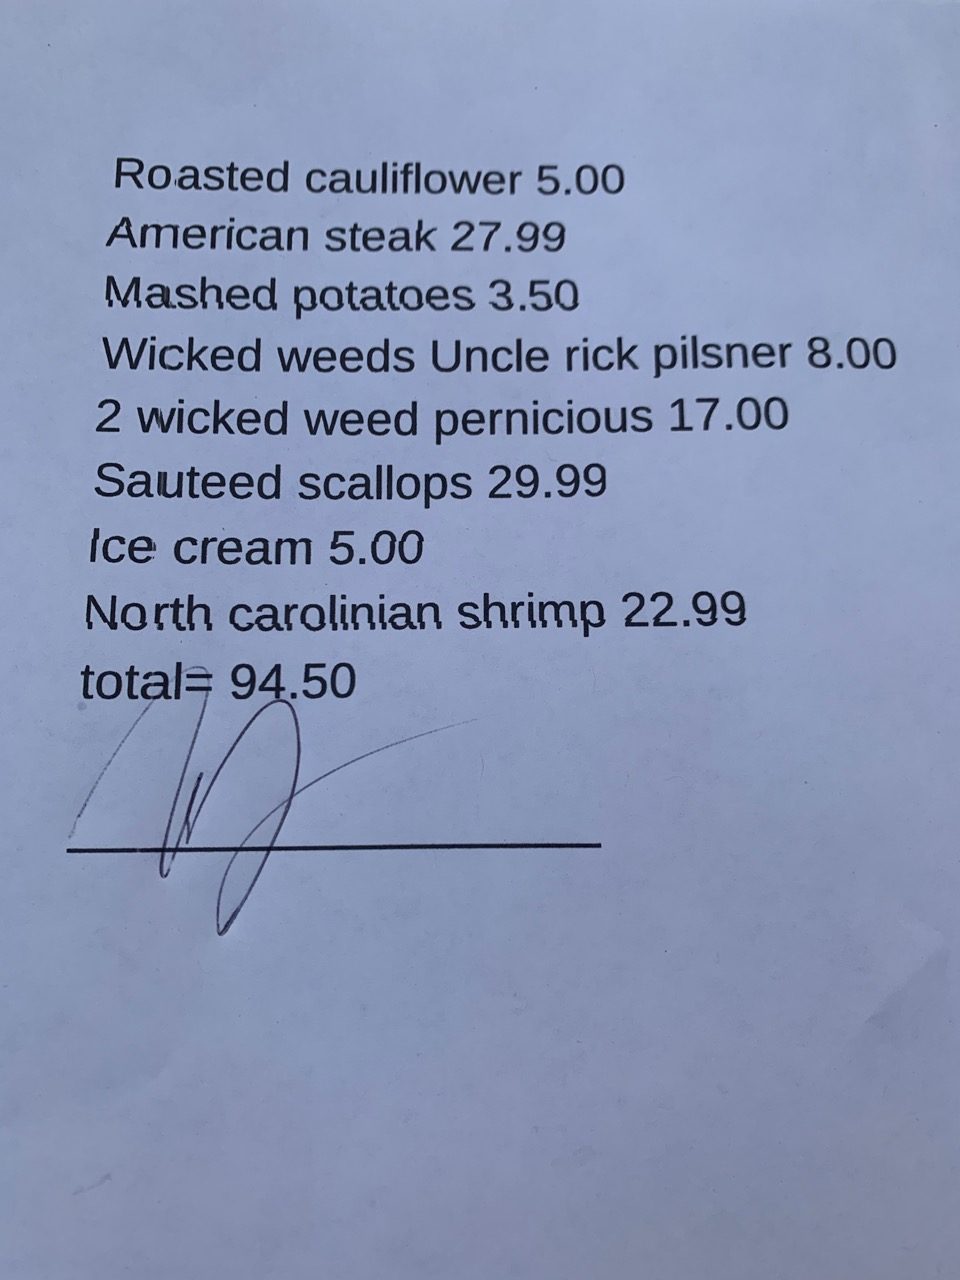 Roasted cauliflower 5.00
American steak 27.99
Mashed potatoes 3.50
Wicked weeds Uncle rick pilsner 8.00
2 wicked weed pernicious 17.00
Sauteed scallops 29.99
Ice cream 5.00
North carolinian shrimp 22.99
total= 94.50